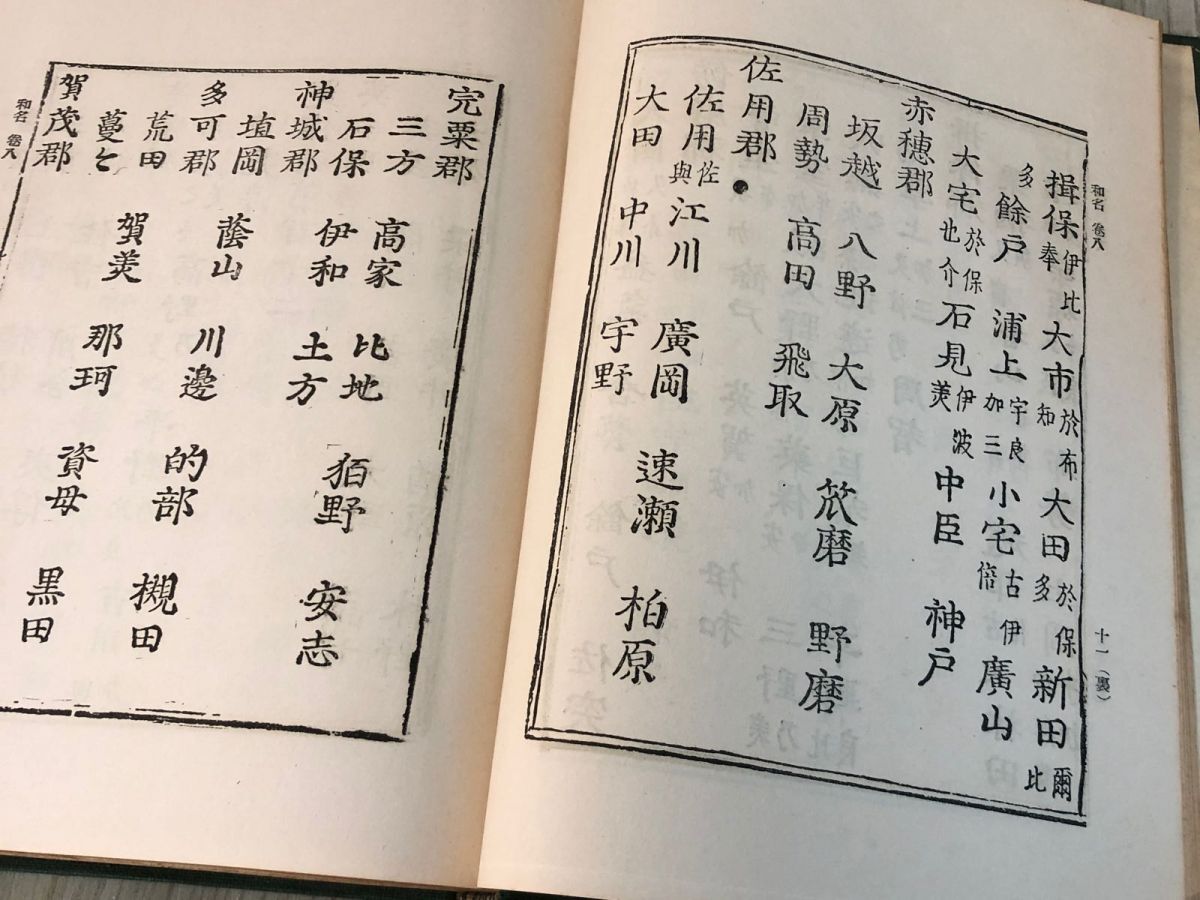 和名 卷八
十一(裏)
揖保 伊比奉 大市 於布知 大田 於保多 新田 爾比
多 餘戸 浦上 宇良加三 小宅 古伊倍 廣山
大宅 於保也介 石見 伊波美 中臣 神戸
赤穂郡
坂越 八野 大原 筑磨 野磨
周勢 高田 飛取
佐用郡
佐用 佐與 江川 廣岡 速瀬 柏原
大田 中川 宇野
完粟郡
三方 高家 比地 狛野 安志
石保 伊和 土方
神城郡
埴岡 蔭山 川邊 的部 槻田
多可郡
荒田 賀美 那珂 資母 黒田
蔓々
賀茂郡
和名 卷八